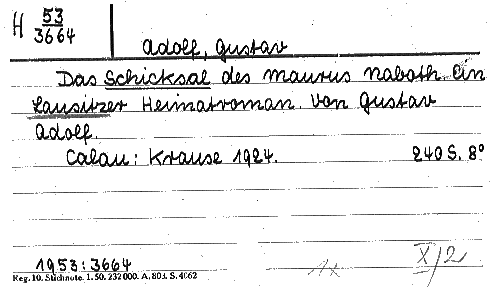 H 53
3664
Adolf, Gustav
Das Schicksal des Maurus Naboth. Ein
Lausitzer Heimatroman. Von Gustav
Adolf.
Calau: Krause 1924. 240 S. 8°
1953:3664
Reg. 10. Stichnote. 1. 50. 232000. A. 803. S. 4062
1x X/2